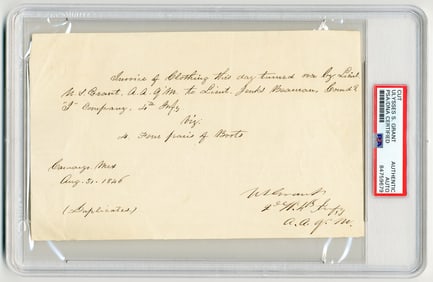 Invoice of Clothing this day turned over by Lieut.
U S Grant, A. A. Q. M. to Lieut. Jenks Beaman, Comd'g
"I" Company, 4th Infy
Viz.
4 Four pairs of Boots
Camargo, Mex
Aug. 31. 1846
(Duplicates)
U S Grant
A. A. Q. M.
CUT
ULYSSES S. GRANT
PSA/DNA CERTIFIED
PSA
AUTHENTIC
AUTO
84759679